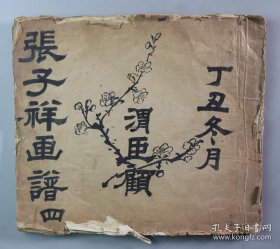 張子祥画譜四
渭臣顧
丁丑冬月
孔夫子旧书网